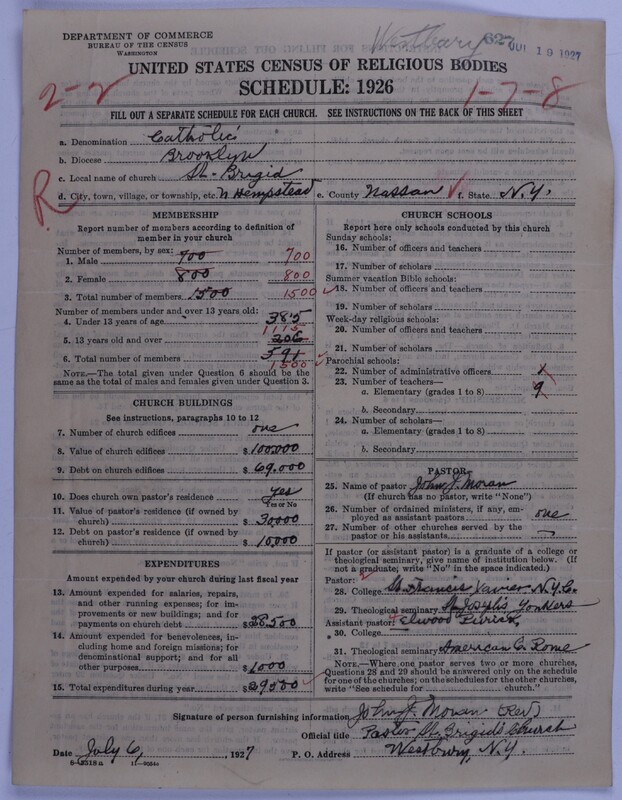 DEPARTMENT OF COMMERCE
BUREAU OF THE CENSUS
WASHINGTON
Westbury
627
JUL 19 1927
UNITED STATES CENSUS OF RELIGIOUS BODIES
2-2
SCHEDULE: 1926
1-7-8
FILL OUT A SEPARATE SCHEDULE FOR EACH CHURCH. SEE INSTRUCTIONS ON THE BACK OF THIS SHEET
a. Denomination Catholic
b. Diocese Brooklyn
c. Local name of church St. Brigid
R
d. City, town, village, or township, etc. N Hempstead e. County Nassau f. State N.Y.
MEMBERSHIP
Report number of members according to definition of
member in your church
Number of members, by sex:
1. Male 700 700
2. Female 800 800
3. Total number of members 1500 1500
Number of members under and over 13 years old:
4. Under 13 years of age 385
1115
5. 13 years old and over 206
6. Total number of members 591
1500
NOTE.—The total given under Question 6 should be the
same as the total of males and females given under Question 3.
CHURCH BUILDINGS
See instructions, paragraphs 10 to 12
7. Number of church edifices one
8. Value of church edifices $ 100,000
9. Debt on church edifices $ 69,000
10. Does church own pastor's residence yes
Yes or No
11. Value of pastor's residence (if owned by
church) $ 30000
12. Debt on pastor's residence (if owned by
church) $ 10,000
EXPENDITURES
Amount expended by your church during last fiscal year
13. Amount expended for salaries, repairs,
and other running expenses; for im-
provements or new buildings; and for
payments on church debt $ 28,500
14. Amount expended for benevolences, in-
cluding home and foreign missions; for
denominational support; and for all
other purposes $ 1000
15. Total expenditures during year $ 29500
CHURCH SCHOOLS
Report here only schools conducted by this church
Sunday schools:
16. Number of officers and teachers
17. Number of scholars
Summer vacation Bible schools:
18. Number of officers and teachers
19. Number of scholars
Week-day religious schools:
20. Number of officers and teachers
21. Number of scholars
Parochial schools:
22. Number of administrative officers
23. Number of teachers—
a. Elementary (grades 1 to 8) 9
b. Secondary
24. Number of scholars—
a. Elementary (grades 1 to 8)
b. Secondary
PASTOR
25. Name of pastor John J. Moran
(If church has no pastor, write "None")
26. Number of ordained ministers, if any, em-
ployed as assistant pastors one
27. Number of other churches served by the
pastor or his assistants
If pastor (or assistant pastor) is a graduate of a college or
theological seminary, give name of institution below. (If
not a graduate, write "No" in the space indicated.)
Pastor:
28. College St. Francis Xavier N.Y.C.
29. Theological seminary St. Joseph's Yonkers
Assistant pastor: Elwood
30. College
31. Theological seminary American C. Rome
NOTE.—Where one pastor serves two or more churches,
Questions 28 and 29 should be answered only on the schedule
for one of the churches; on the schedules for the other churches,
write "See schedule for church."
Signature of person furnishing information John J. Moran (Rev)
Official title Pastor St. Brigid's Church
Date July 6, 1927 P. O. Address Westbury, N.Y.